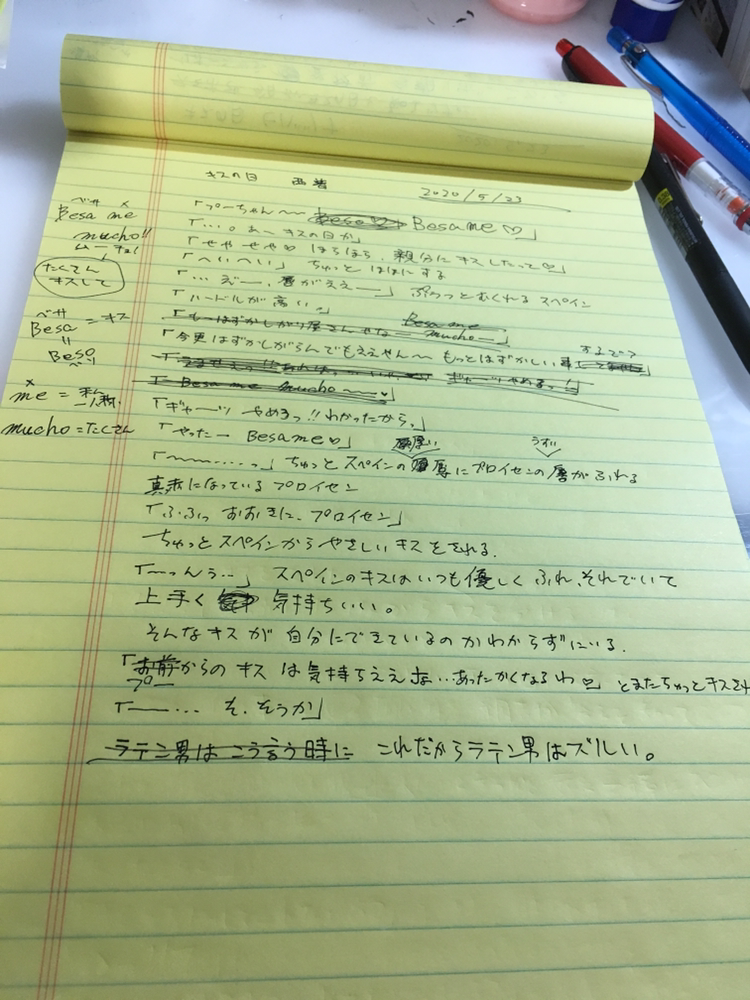 キスの日 西普 2020/5/23
ベサ メ
Besa me
mucho!!
ムーチョ!
たくさん
キスして
ベサ
Besa = キス
〃
Beso
ベソ
メ
me = 私
mucho = たくさん
「プーちゃん〜〜 Beso♡ Besame♡」
「…。あ〜キスの日か」
「せやせや♡ ほらほら、親分にキスしたって♡」
「へいへい」 ちゅっと ほほにする
「…えー、唇がええー」 ぷうっとむくれる スペイン
「ハードルが高い。」
「もーはずかしがり屋さんやなー Besame mucho〜」
「今更はずかしがらんでもええやん〜 もっとはずかしい事 するで?
「Besa me mucho〜〜♡」
「ギャーッ やめろっ!!わかったから。」
「やったー Besame♡」
「〜〜……っ」 ちゅっと スペインの 厚い 唇にプロイセンの うすい 唇がふれる
真赤になっている プロイセン
「ふふっ おおきに、プロイセン」
ちゅっとスペインからやさしいキスをされる。
「〜っんぅ…」 スペインのキスはいつも優しく ふれ、それでいて
上手く 気持ちいい。
そんなキスが 自分にできているのか わからずにいる。
「お前からの キスは気持ちええなぁ…あったかくなるわ♡」 とまたちゅっとキスを
プー
「〜… そ、そうか」
ラテン男は こう言う時に これだからラテン男はズルい。